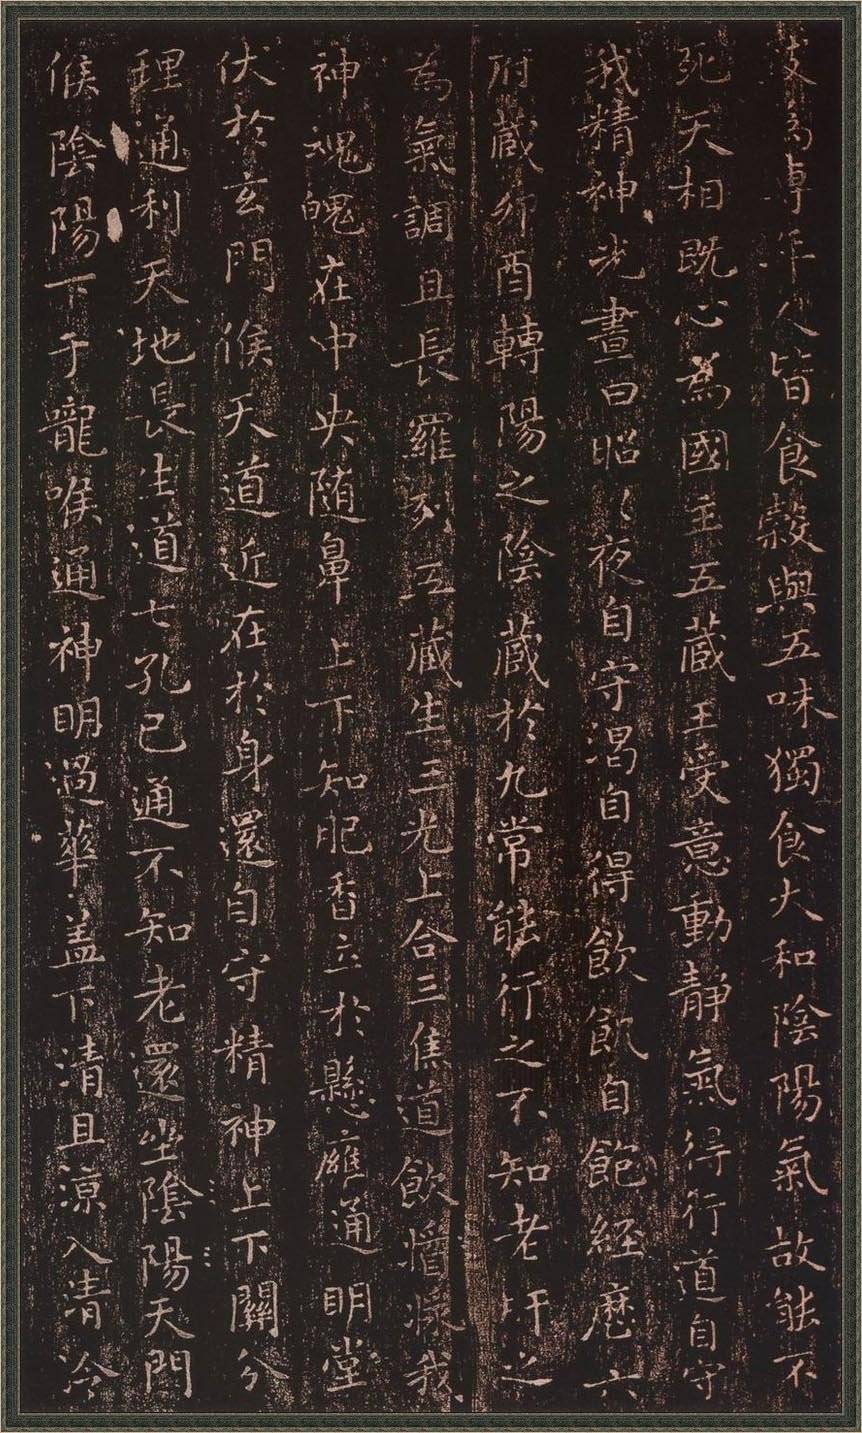 為專年人皆食穀與五味獨食大和陰陽氣故能不
死天相既心為國主五藏王受意動靜氣得行道自守
我精神光晝日昭〻夜自守渴自得飲飢自飽經歷六
府藏卯酉轉陽之陰藏於九常能行之不知老肝之
為氣調且長羅列五藏生三光上合三焦道飲漿我
神魂魄在中央随鼻上下知肥香立於懸廱通明堂
伏於玄門候天道近在於身還自守精神上下關分
理通利天地長生道七孔已通不知老還坐陰陽天門
候陰陽下于嚨喉通神明過華盖下清且涼入清泠